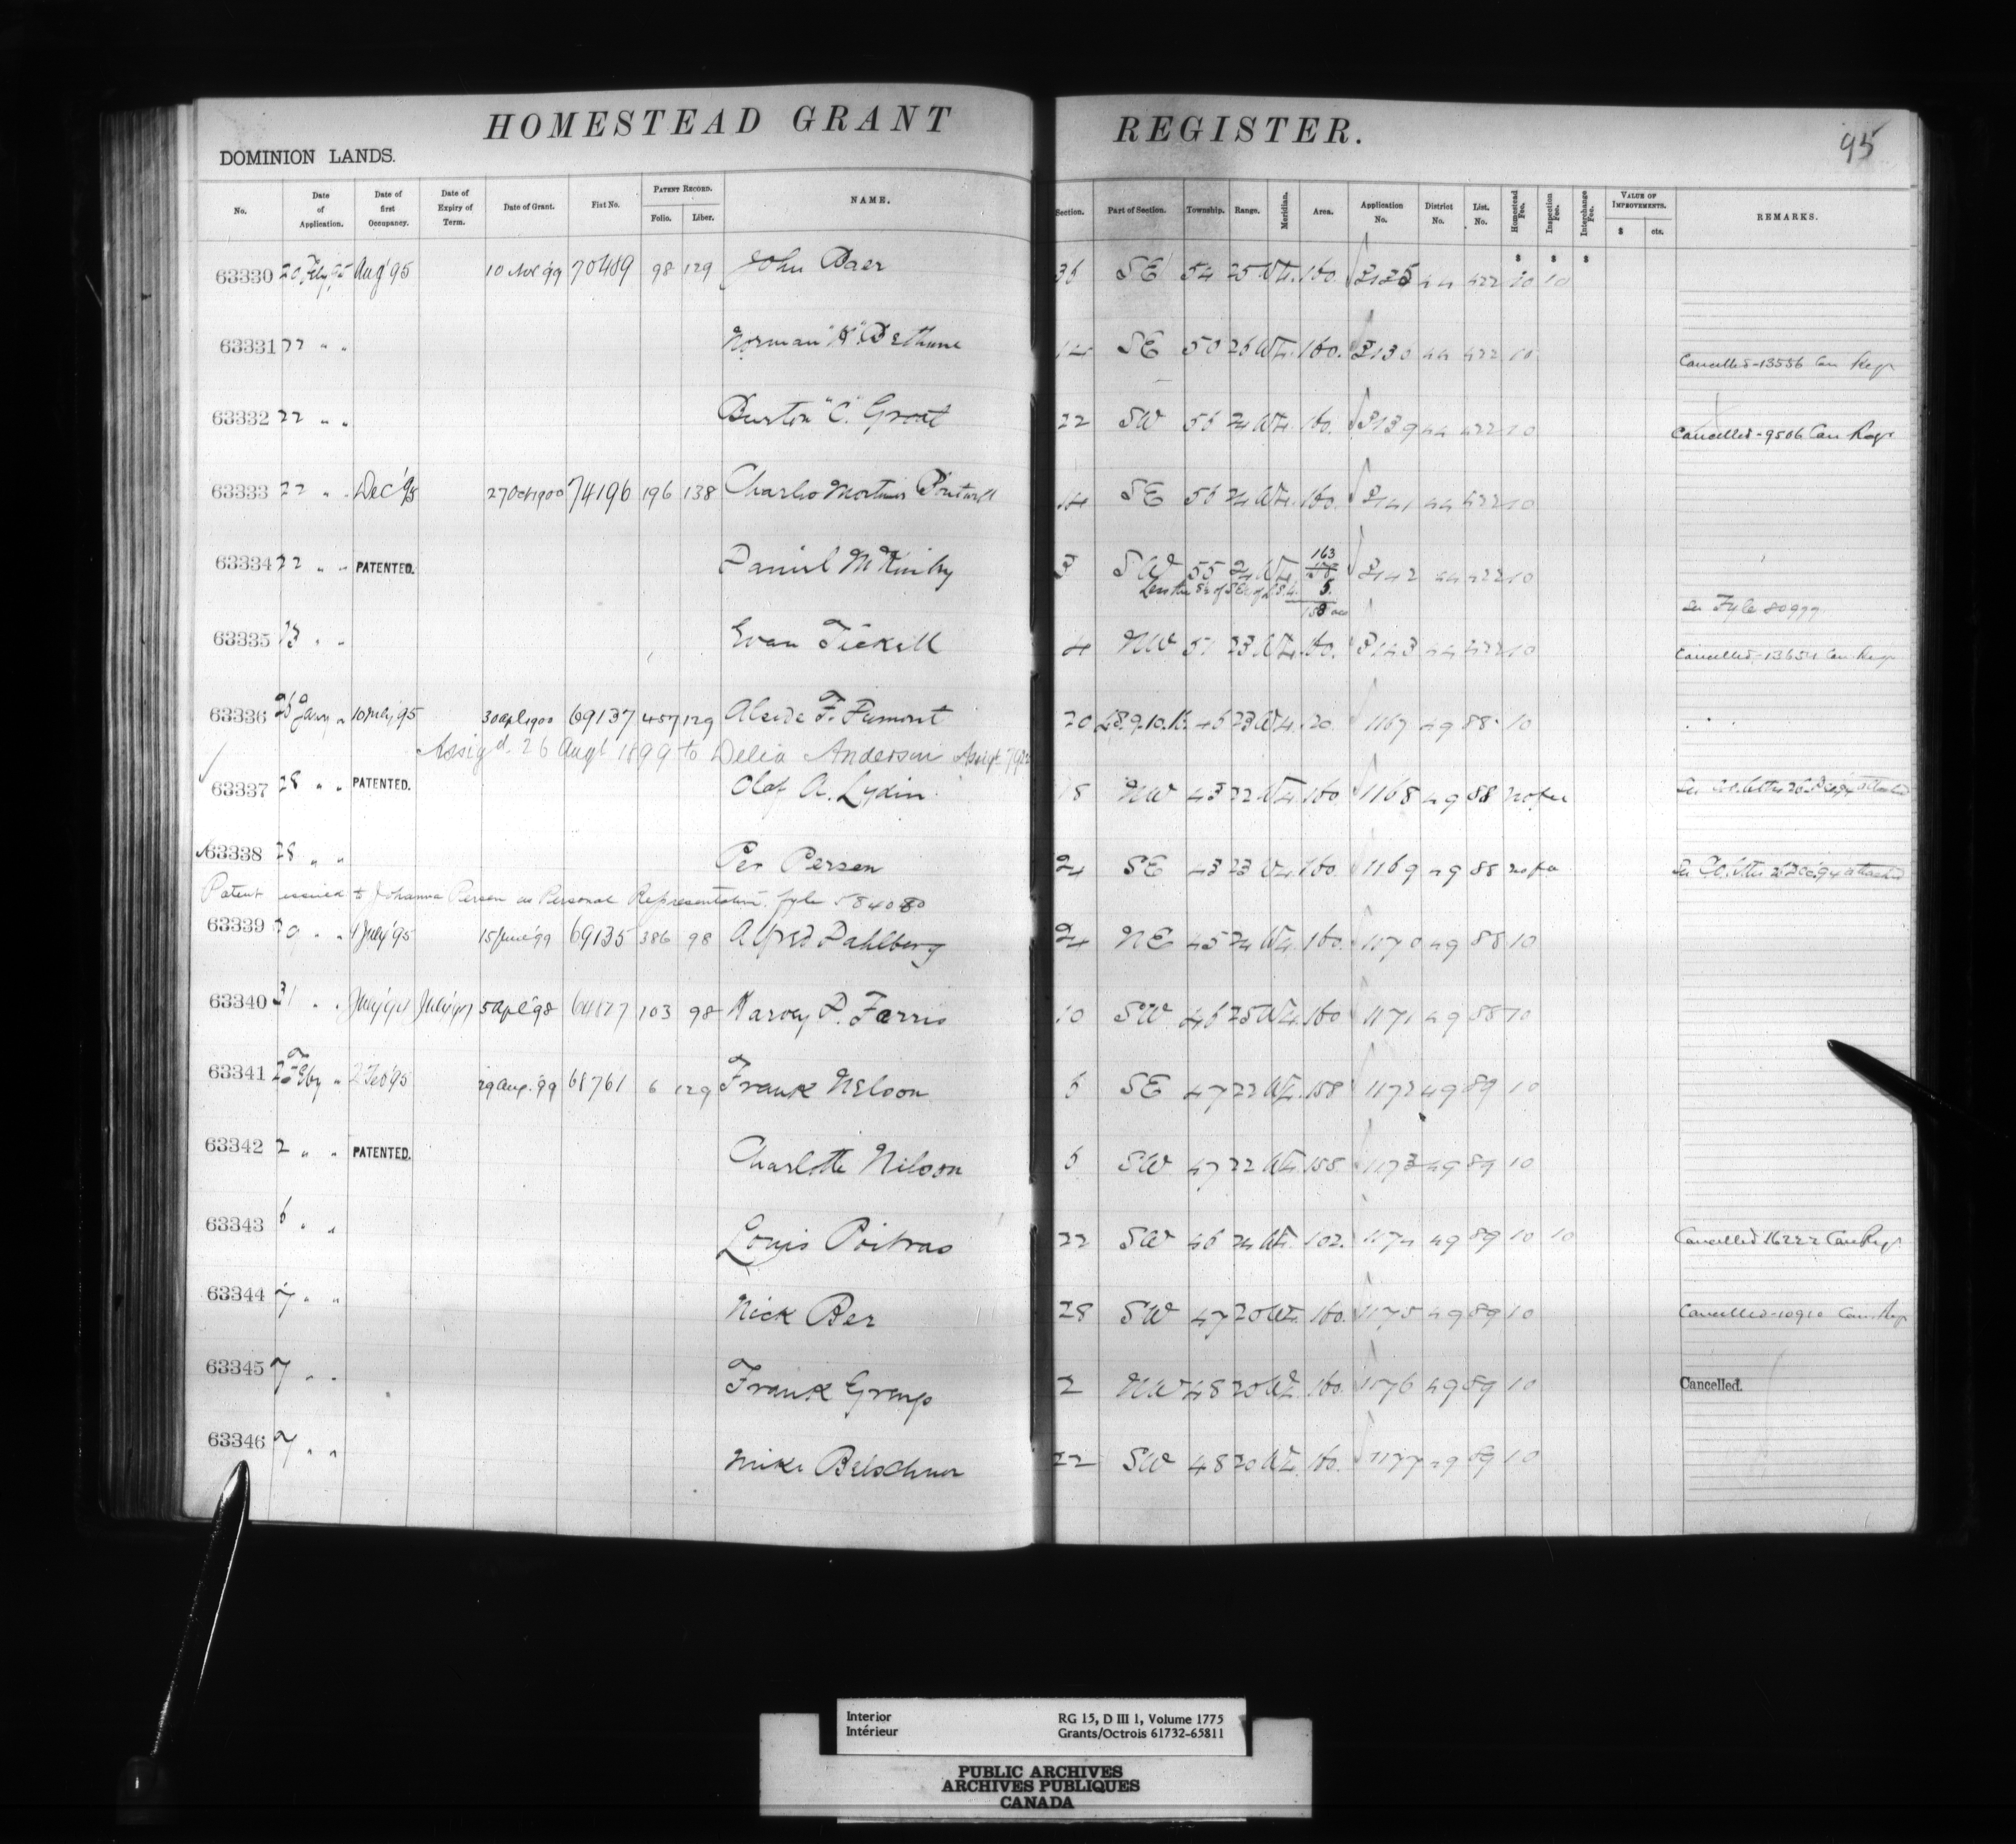 HOMESTEAD GRANT REGISTER.
95
DOMINION LANDS.
No. Date of Application. Date of first Occupancy. Date of Expiry of Term. Date of Grant. Fiat No. PATENT RECORD. Folio. Liber. NAME. Section. Part of Section. Township. Range. Meridian. Area. Application No. District No. List. No. Homestead Fee. Inspection Fee. Interchange Fee. VALUE OF IMPROVEMENTS. $ cts. REMARKS.
$ $ $
63330 20 Feby '95 Aug '95 70489 98 129 John Baer 36 SE 54 25 W4. 160. 44 422 10 10
63331 22 " " Norman "K" Bethune 14 SE 50 26 W4. 160. 2130 44 422 10
Cancelled-13556 Can Regr
63332 22 " " Burton "C". Groat 22 SW 56 24 W4. 160. 2139 44 422 10
Cancelled-9506 Can Regr
63333 22 " " Dec '95 27 Oct 1900 74196 196 138 Charles Mortimer 14 SE 56 24 W4. 160. 2141 44 422 10
63334 22 " " PATENTED. Daniel McKinley SW 55 24 W4. 163 2142 44 422 10
Less the of of 5.
158 acs
See Fyle 80999
63335 " " Evan Tickell 4 NW 51 23 W4. 160. 2143 44 422 10
Cancelled-13654 Can Regr
63336 26 Jany " 10 July '95 30 apl 1900 69137 457 129 Alcide F. Dumont 20 LS.9.10. 46 23 W4. 1167 49 88 10
Assigd. 26 Augt 1899 to Delia Anderson Assigt
63337 28 " " PATENTED. Olof A. Lydin 18 NW 43 22 W4. 160. 1168 49 88 no fee
63338 28 " " Per Persen 24 SE 43 23 W4. 160. 1169 49 88 no fee
Patent issued to Johanna Persen as Personal Representative. fyle 584080
63339 " " July '95 15 June '99 69135 386 98 Alfred Dahlberg 24 NE 45 24 W4. 160. 1170 49 88 10
63340 31 " " 5 Apl '98 103 98 Harvey P. Farris 10 SW 46 25 W4. 160 1171 49 88 10
63341 2 Feby " 2 Feb '95 29 Aug. '99 68761 6 129 Frank Nelson 6 SE 47 22 W4. 158 1172 49 89 10
63342 2 " " PATENTED. Charlotte Nilson 6 SW 47 22 W4. 158. 1173 49 89 10
63343 6 " " Louis Poitras 22 SW 46 24 W4. 102. 1174 49 89 10 10 Cancelled 16222 Can Regr
63344 7 " " Nick Ber 28 SW 47 20 W4. 160. 1175 49 89 10 Cancelled-10910 Can Reg
63345 7 " " Frank 2 NW 48 20 W4. 160. 1176 49 89 10 Cancelled.
63346 7 " " Mike 22 SW 48 20 W4. 160. 1177 49 89 10
Interior RG 15, D III 1, Volume 1775
Intérieur Grants/Octrois 61732-65811
PUBLIC ARCHIVES
ARCHIVES PUBLIQUES
CANADA